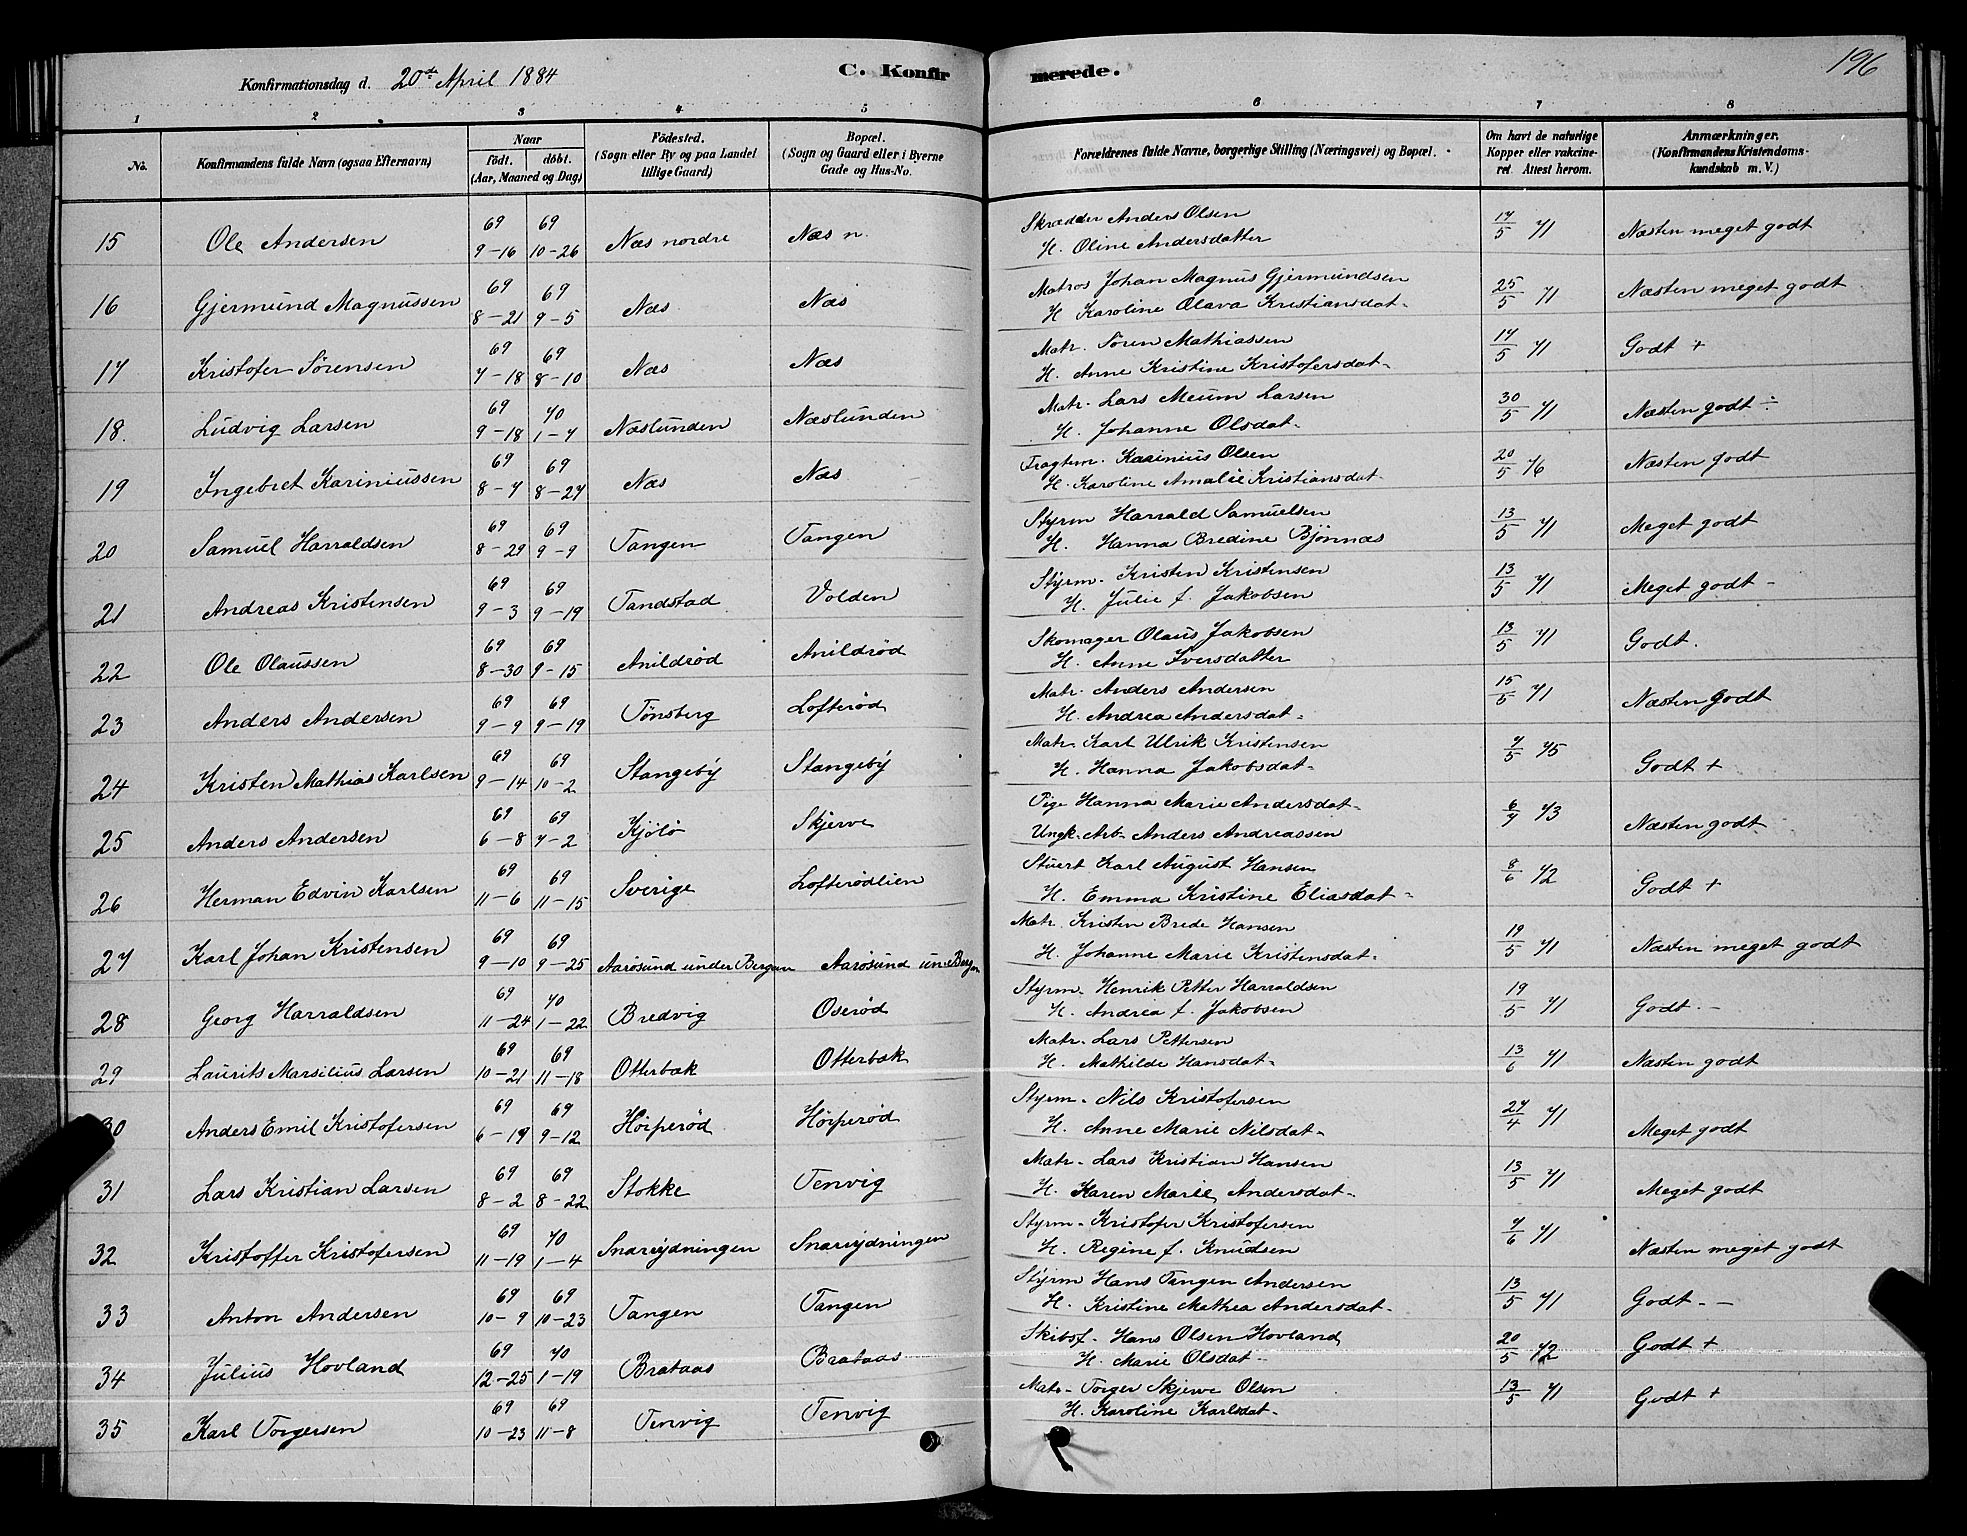 196
Konfirmationsdag d. 20de April 1884 C. Konfirmerede.
1 2 3 4 5 6 7 8
No. Konfirmandens fulde Navn (ogsaa Efternavn) Naar födt. döbt. (Aar, Maaned og Dag) Födested. (Sogn eller By og paa Landet tillige Gaard) Bopæl. (Sogn og Gaard eller i Byerne Gade og Hus-No. Forældrenes fulde Navne, borgerlige Stilling (Næringsvei) og Bopæl. Om havt de naturlige Kopper eller vakcineret. Attest herom. Anmærkninger. (Konfirmandens Kristendomskundskab m. V.)
15 Ole Andersen 69 9-16 69 10-26 Næs nordre Næs n. Skrædder Anders Olsen 17/5 71 Næsten meget godt
H. Oline Andersdatter
16 Gjermund Magnussen 69 8-21 69 9-5 Næs Næs Matros Johan Magnus Gjermundsen 25/5 71 Næsten meget godt
H Karoline Olava Kristiansdat-
17 Kristofer Sörensen 69 7-18 69 8-10 Næs Næs Matr. Sören Mathiassen 17/5 71 Godt +
H. Anne Kristine Kristofersdat-
18. Ludvig Larsen 69 9-18 70 1-7 Næslunden Næslunden Matr- Lars Meum Larsen 30/5 71 Næsten godt ÷
H. Johanne Olsdat-
19 Ingebret Kariniussen 69 8-7 69 8-27 Næs Næs Fragtm. Karinius Olsen 20/5 76 Næsten godt
H. Karoline Amalie Kristiansdat-
20 Samuel Harraldsen 69 8-29 69 9-9 Tangen Tangen Styrm Harrald Samuelsen 13/5 71 Meget godt
H. Hanna Bredine Bjønnæs
21 Andreas Kristensen 69 9-3 69 9-19 Tandstad Volden Styrm- Kristen Kristensen 13/5 71 Meget godt -
H. Julie f. Jakobsen
22 Ole Olaussen 69 8-30 69 9-15 Anildrød Anildrød Skomager Olaus Jakobsen 13/5 71 Godt.
H. Anne Iversdatter
23 Anders Andersen 69 9-9 69 9-19 Tönsberg Lofterød Matr- Anders Andersen 15/5 71 Næsten godt
H. Andrea Andersdat-
24 Kristen Mathias Karlsen 69 9-14 69 10-2 Stangeby Stangeby Matr. Karl Ulrik Kristensen 7/5 75 Godt +
H. Hanna Jakobsdat-
25 Anders Andersen 69 6-8 69 7-2 Kjölö Skjerve Pige Hanna Marie Andersdat- 6/7 73 Næsten godt
Ungk. Arb- Anders Andreassen
26 Herman Edvin Karlsen 69 11-6 69 11-15 Sverige Lofterødlien Stuert Karl August Hansen 8/6 72 Godt +
H. Emma Kristine Eliasdat-
27 Karl Johan Kristensen 69 9-10 69 9-25 Aarøsund under Bergan Aarøsund un. Bergan Matr. Kristen Brede Hansen 19/5 71 Næsten meget godt
H. Johanne Marie Kristensdat-
28 Georg Harraldsen 69 11-24 70 1-22 Bredvig Oserød Styrm- Henrik Petter Harraldsen 19/5 71 Godt. -
H. Andrea f. Jakobsen
29 Laurits Marsilius Larsen 69 10-21 69 11-18 Otterbæk Otterbæk Matr- Lars Pettersen 13/6 71 Næsten godt
H. Mathilde Hansdat-
30 Anders Emil Kristofersen 69 6-19 69 9-12 Hörperød Hörperød Styrm- Nils Kristofersen 27/4 71 Meget godt
H. Anne Marie Nilsdat-
31 Lars Kristian Larsen 69 8-2 69 8-22 Stokke Tenvig Matr- Lars Kristian Hansen 13/5 71 Meget godt
H. Karen Marie Andersdat-
32 Kristoffer Kristofersen 69 11-19 70 1-4 Snarrydningen Snarrydningen Styrm- Kristofer Kristofersen 7/6 71 Næsten meget godt
H. Regine f. Knudsen
33 Anton Andersen 69 10-9 69 10-23 Tangen Tangen Styrm Hans Tangen Andersen 13/5 71 Godt. -
H. Kristine Mathea Andersdat-
34 Julius Hovland 69 12-25 70 1-19 Brataas Brataas Skibsf- Hans Olsen Hovland 20/5 72 Godt +
H. Marie Olsdat-
35 Karl Torgersen 69 10-23 69 11-8 Tenvig Tenvig Matr- Torger Skjerve Olsen 13/5 71 Godt +
H. Karoline Karlsdat-